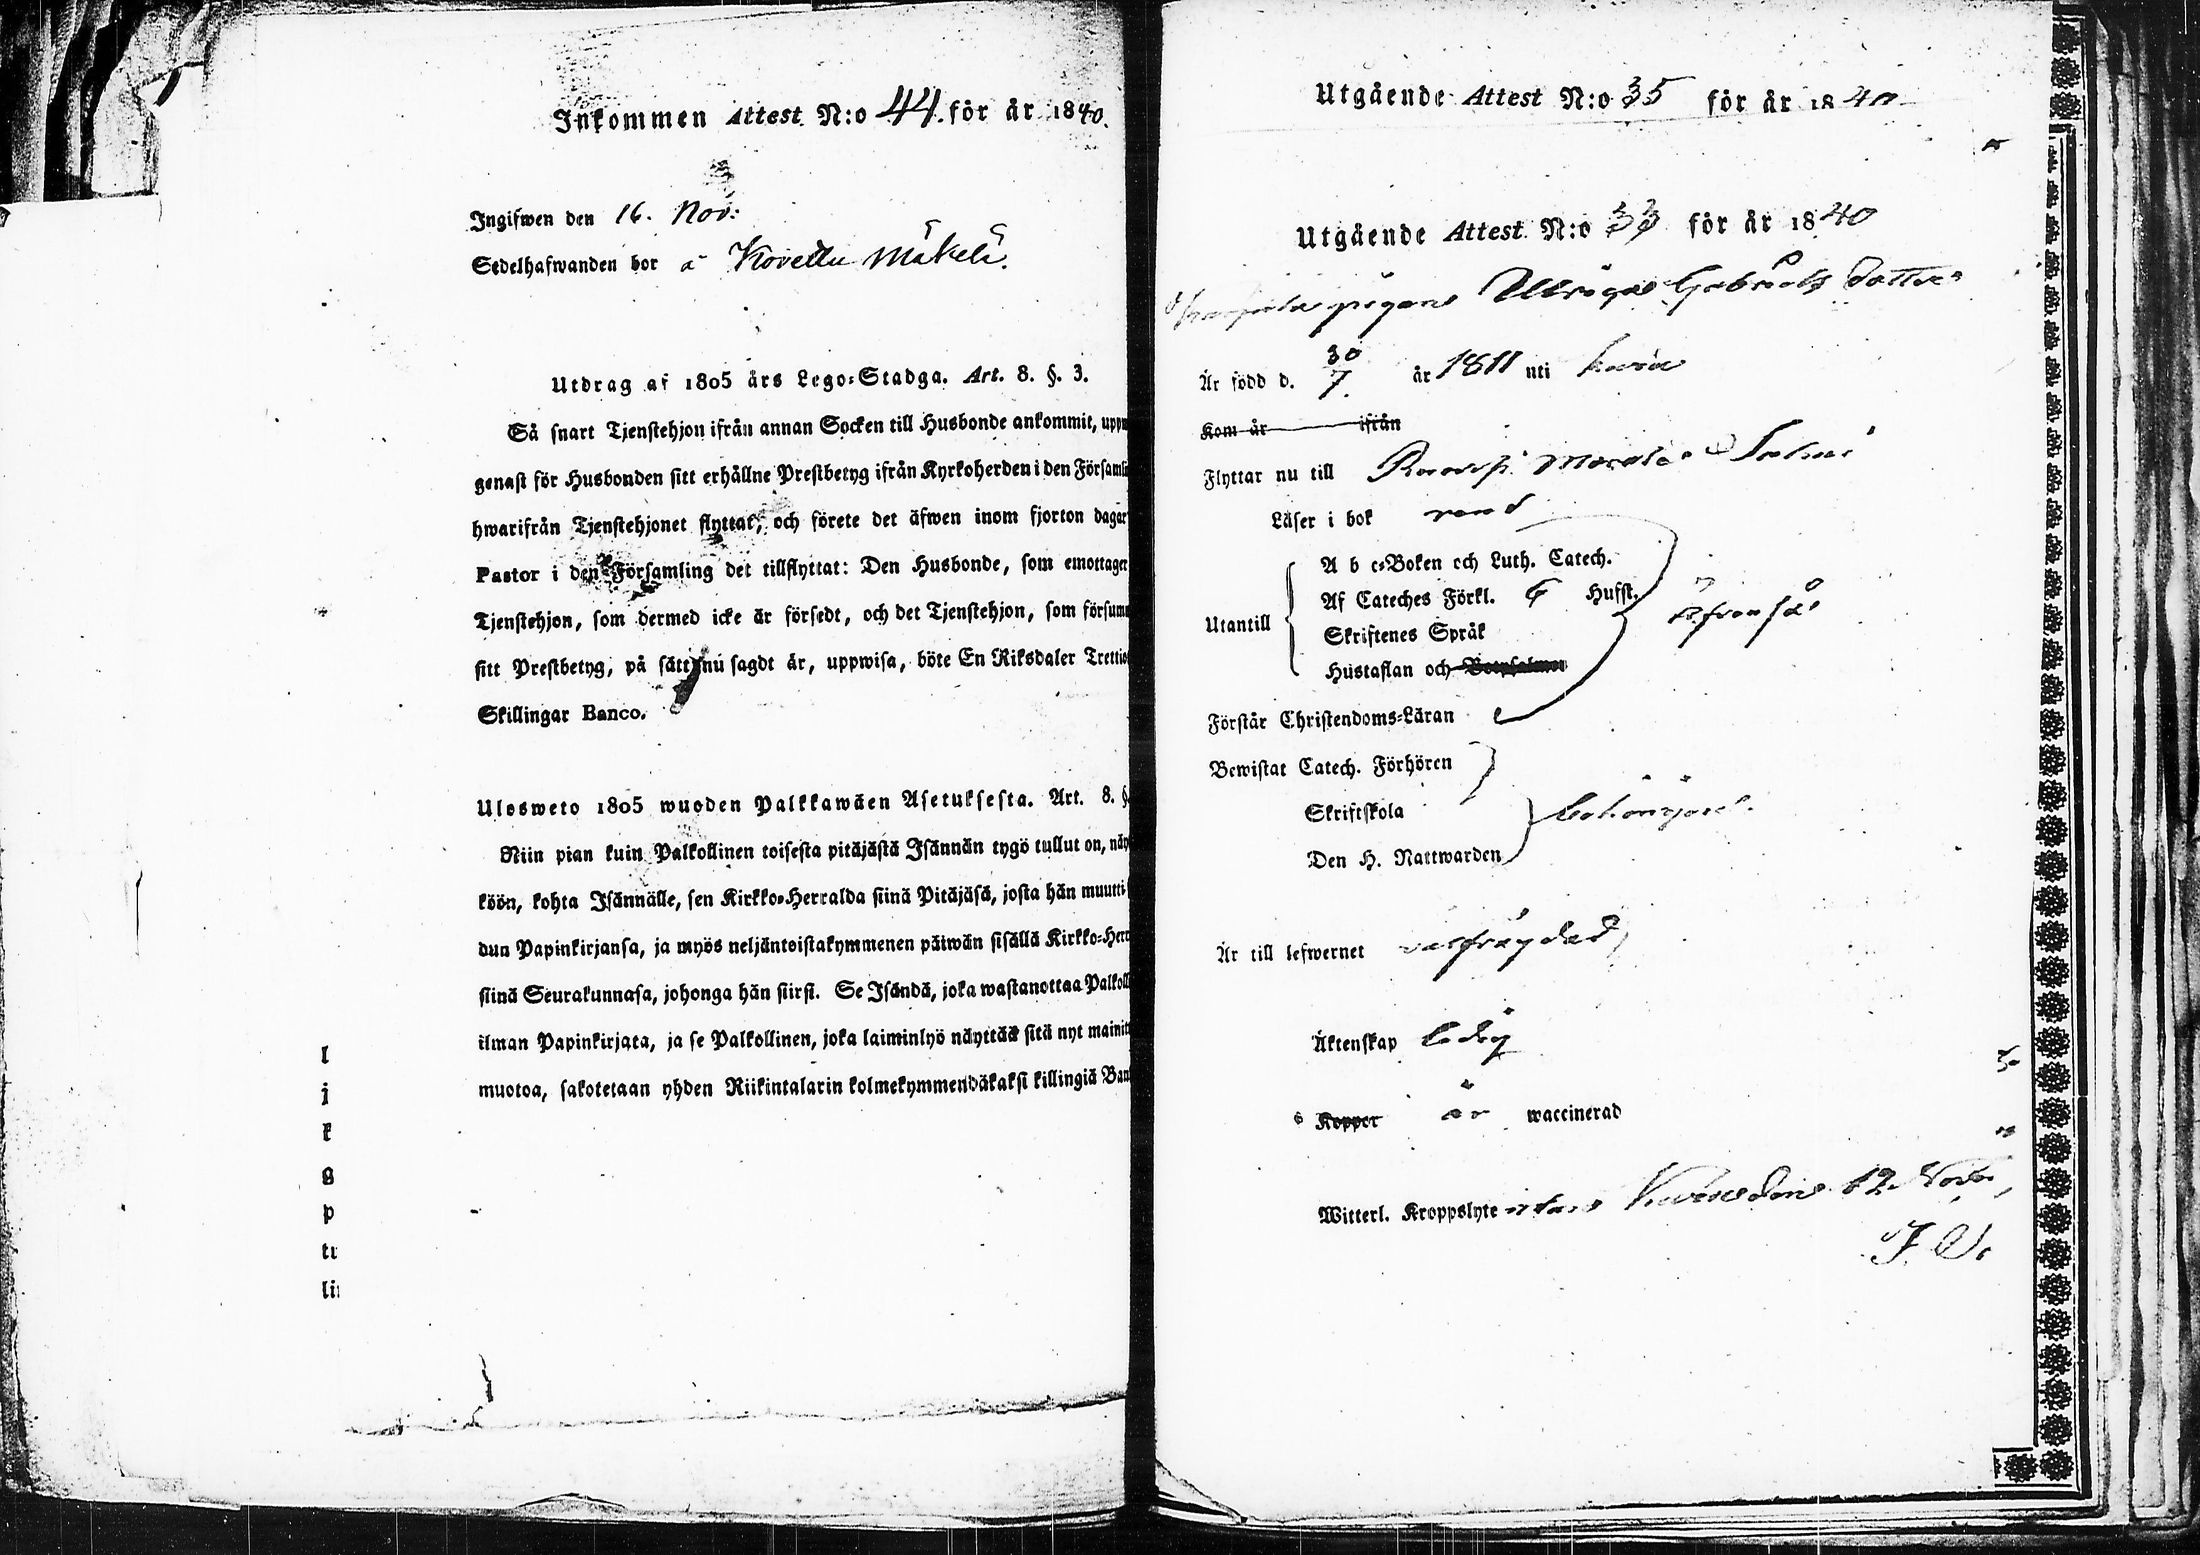 Inkommen Attest N:o 44. för år 1840.
Ingifwen den 16. Nov:
Sedelhafwanden bor å Kovella Mäkelä.
Utdrag af 1805 års Lego-Stadga. Art. 8. §. 3.
Så snart Tjenstehjon ifrån annan Socken till Husbonde ankommit, uppw
genast för Husbonden sitt erhållne Prestbetyg ifrån Kyrkoherden i den Församli
hwarifrån Tjenstehjonet flyttat, och förete det äfwen inom fjorton dagar
Pastor i den Församling det tillflyttat: Den Husbonde, som emottager
Tjenstehjon, som dermed icke är försedt, och det Tjenstehjon, som försum
sitt Prestbetyg, på sätt nu sagdt är, uppwisa, böte En Riksdaler Trettio
Skillingar Banco.
Ulosweto 1805 wuoden Palkkawäen Asetuksesta. Art. 8. §.
Niin pian kuin Palkollinen toisesta pitäjästä Isännän tygö tullut on, näy
köön, kohta Isännälle, sen Kirkko-Herralda siinä Pitäjäsä, josta hän muutti
dun Papinkirjansa, ja myös neljäntoistakymmenen päiwän sisällä Kirkko-Herr
siinä Seurakunnasa, johonga hän siirsi. Se Isändä, joka wastanottaa Palkoll
ilman Papinkirjata, ja se Palkollinen, joka laiminlyö näyttää sitä nyt mainit
muotoa, sakotetaan yhden Riikintalarin kolmekymmendäkaksi killingiä Ban
l
i
k
s
p
tu
lii
Utgående Attest N:o 35 för år 1840
Utgående Attest N:o 33 för år 1840
pigan Ulrica Gabriels dotter
Är född d. 30/7 år 1811 uti
Kom år ifrån
Flyttar nu till
Läser i bok
Utantill
A b c-Boken och Luth. Catech.
Af Cateches Förkl. 6 Hufst.
Skriftenes Språk
Hustaflan och Botpsalmer
Förstår Christendoms-Läran
Bewistat Catech. Förhören
Skriftskola
Den H. Nattwarden
behörigen
Är till lefwernet välfrägdad
Äktenskap ledig
Koppor är waccinerad
Witterl. Kroppslyte utan den 12 Nov.